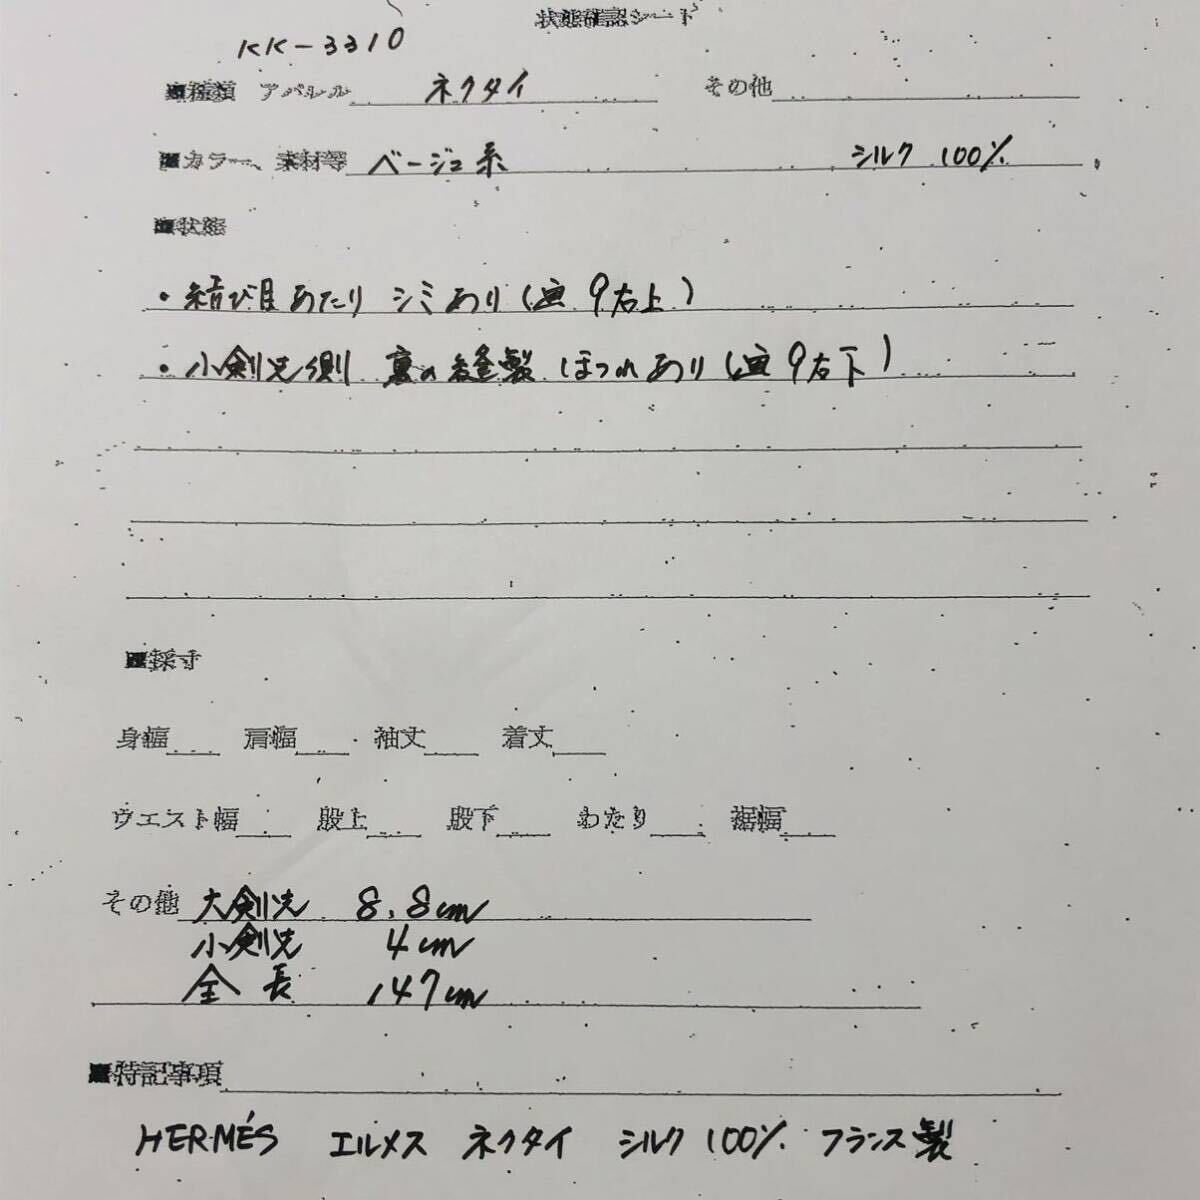 状態確認シート
KK-3310
■種類 アパレル ネクタイ その他
■カラー、素材等 ベージュ系 シルク 100%
■状態
・結び目あたり シミあり (画9右上)
・小剣先側 裏の縫製 ほつれあり (画9右下)
■採寸
身幅 肩幅 袖丈 着丈
ウエスト幅 股上 股下 わたり 裾幅
その他 大剣先 8.8cm
小剣先 4cm
全長 147cm
■特記事項
HERMÉS エルメス ネクタイ シルク 100% フランス製